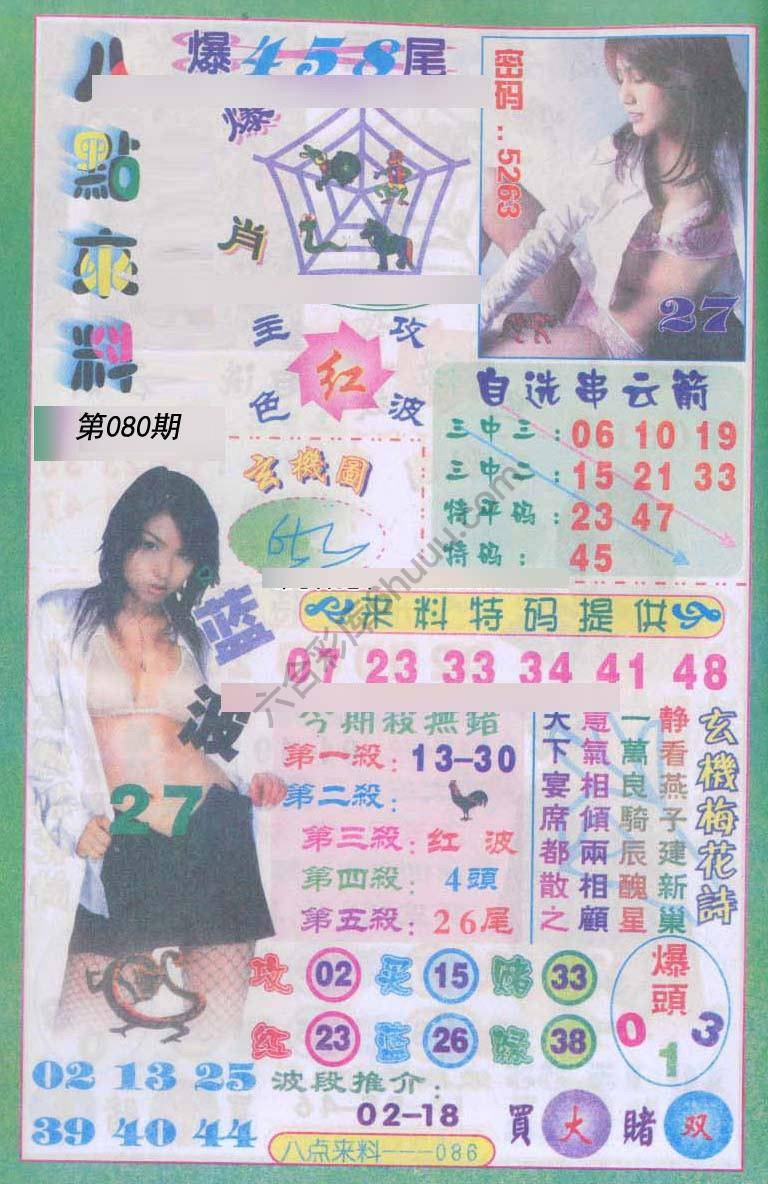 八點來料
爆458尾
爆肖
密码..5263
27
主攻
红
色波
自选串云箭
三中三：06 10 19
三中二：15 21 33
特平码：23 47
特码：45
第080期
玄機圖
六合彩库6huuu.com
蓝波
27
来料特码提供
07 23 33 34 41 48
今期殺無錯
第一殺：13-30
第二殺：
第三殺：红波
第四殺：4頭
第五殺：26尾
玄機梅花詩
静看燕子建新巢
一萬良騎辰醜星
意氣相傾兩相顧
天下宴席都散之
攻 02 买 15 赌 33
红 23 蓝 26 緑 38
爆頭
0 1 3
02 13 25
39 40 44
波段推介：
02-18
買大賭双
八点来料---086